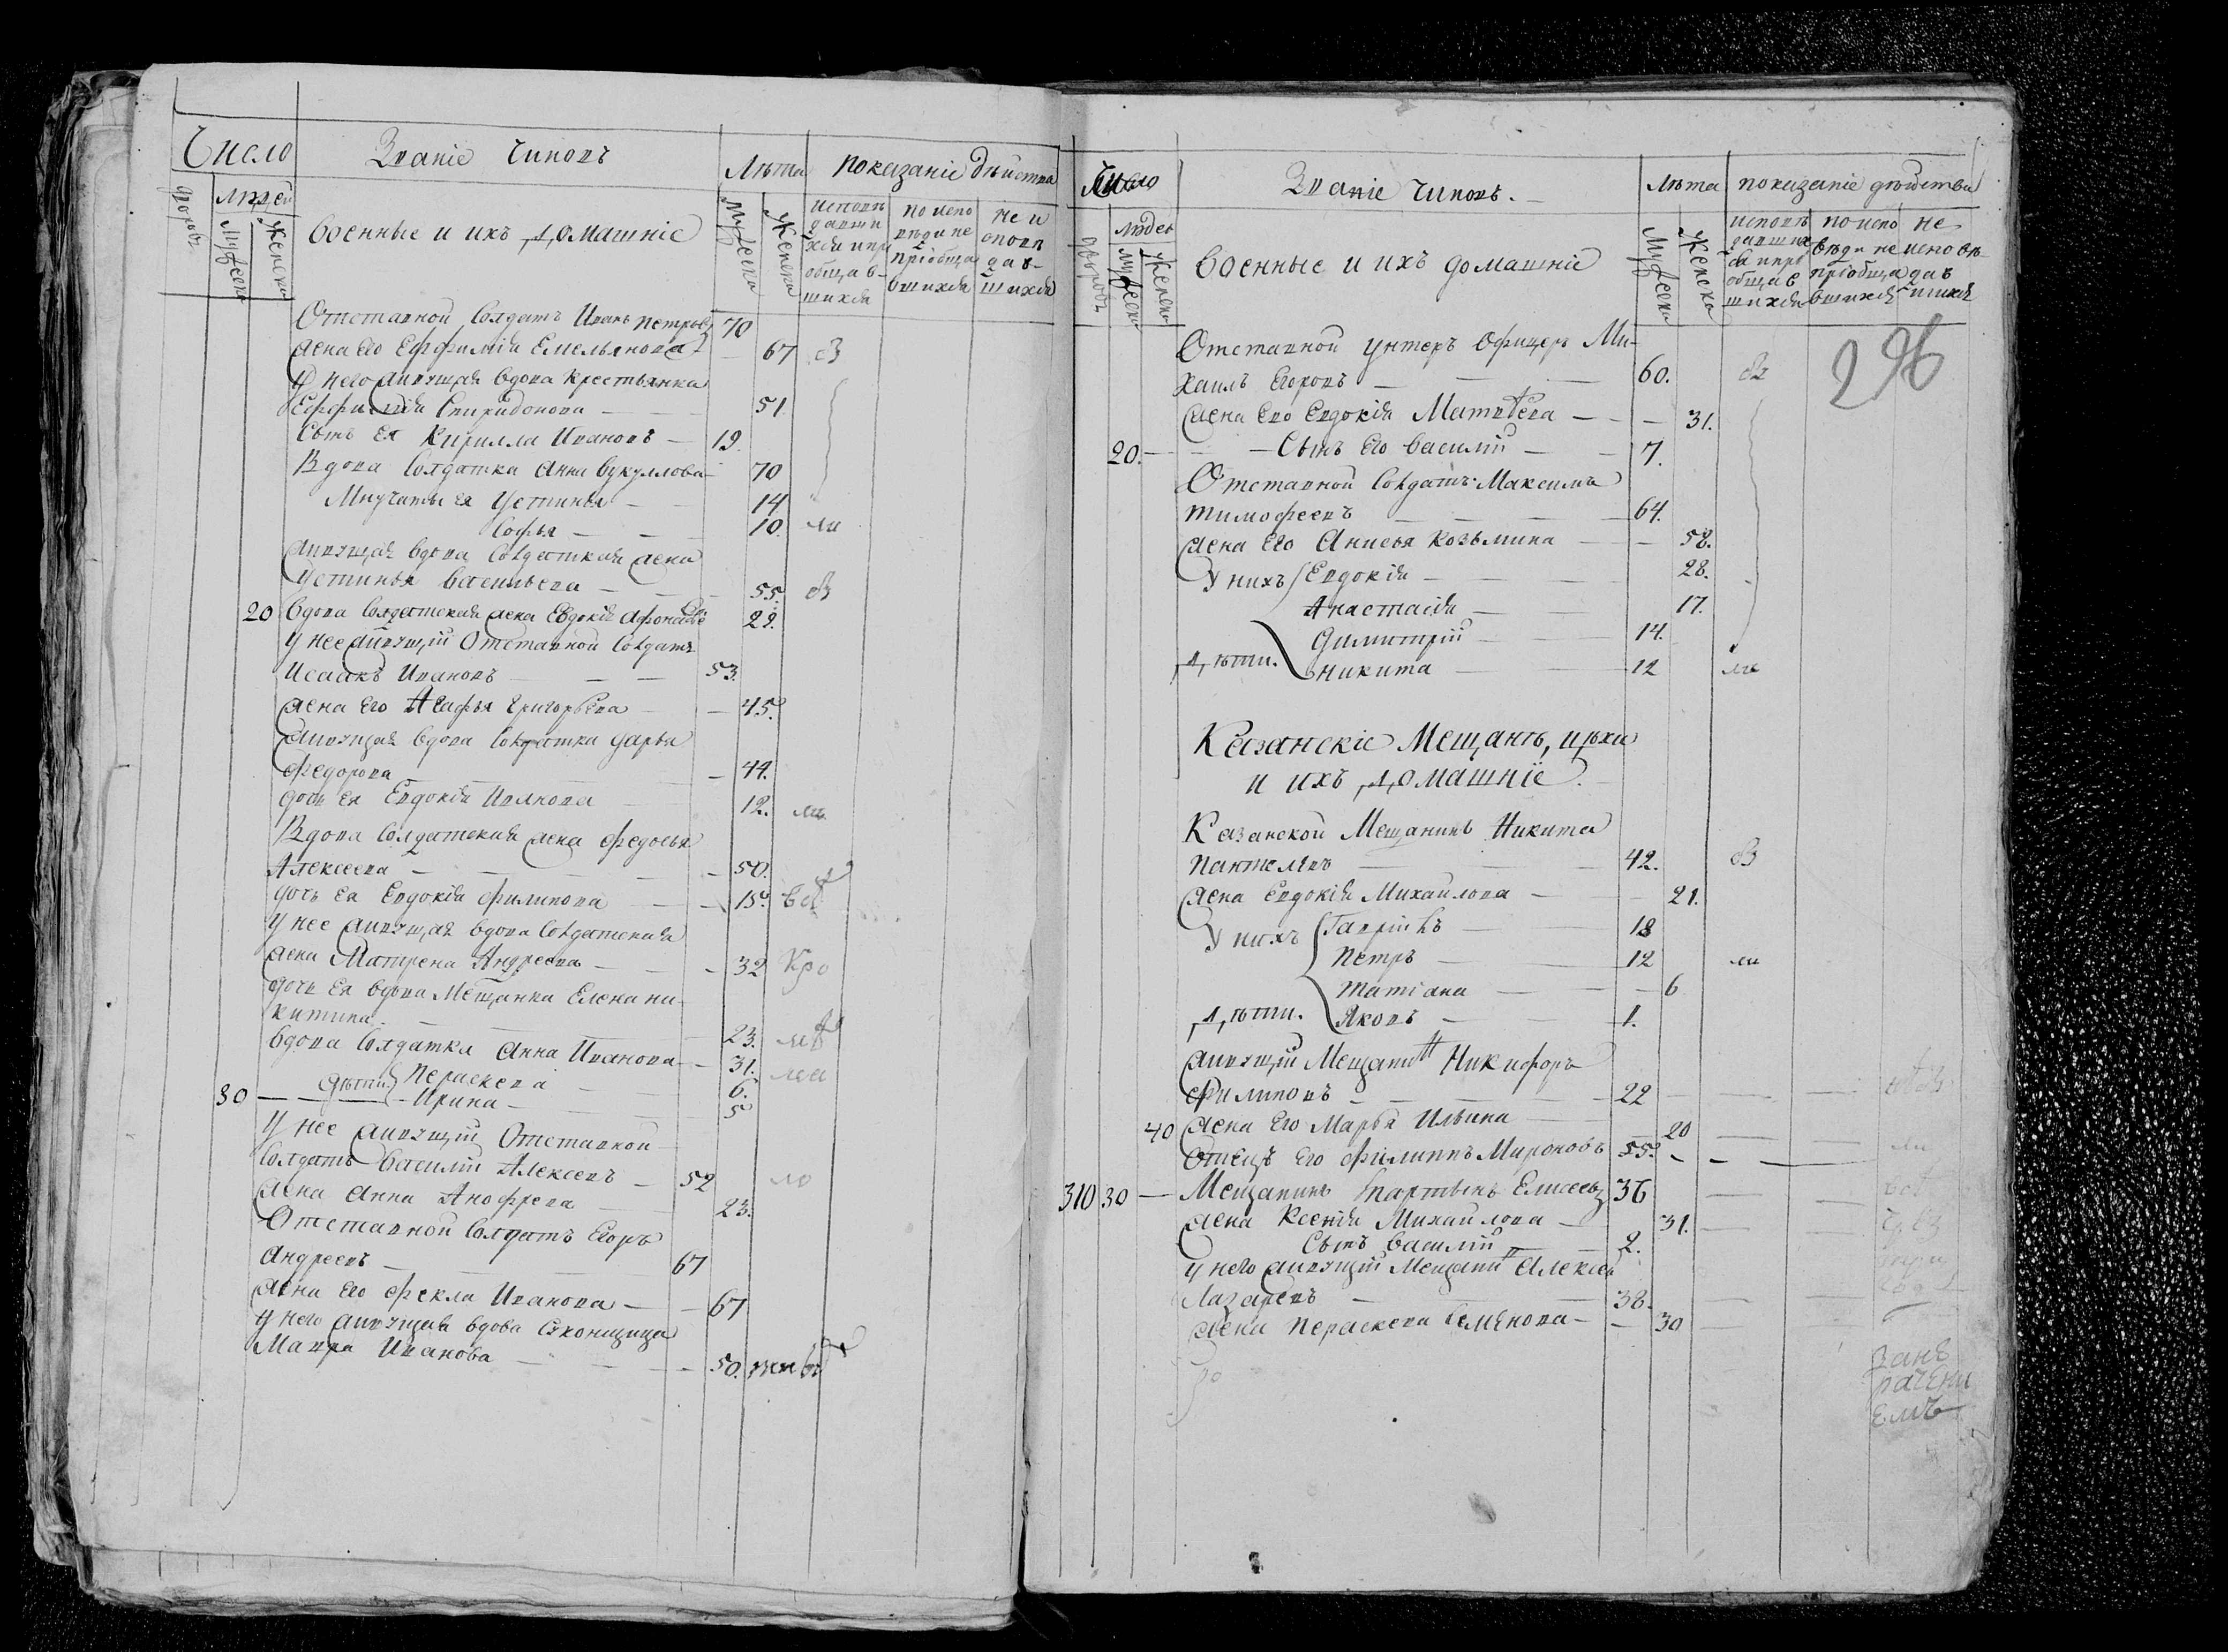 Число
Званіе чиновъ
Лѣта
показаніе дѣиства
дворовъ
людей
мужеска
женска
военные и ихъ домашніе
Мужеска
Женска
исповѣ
давши
хся и прі
общав-
шихся
по испо
вѣди не
пріобща
вшихся
не и
спов
дав-
шихся
Отставной Солдатъ Иванъ петровъ 70
жена Его Еуфимія Емельянова 67 св
У него живущая вдова крестьянка
Еуфимія Спиридонова — 51.
Сынъ Ея Кирилла Ивановъ — 19.
Вдова Солдатка Анна Вукуллова 70
Внучаты ея Устинья — 14
Софья — 10. ми
живущая вдова Солдатская жена
Устинья васильева — 55. св
20 вдова Солдатская жена Евдокія Афонасье 29.
у нее живущій Отставной Солдатъ
Исаакъ Ивановъ — 53.
жена Его Агафья Григорьева — 45.
живущая вдова Солдатка Дарья
Федорова — 44.
дочь Ея Евдокія Иванова 12. ми
Вдова Солдатская жена Федосья
Алексеева — 50.
дочь Ея Евдокія Филипова — 15.
у нее живущая вдова Солдатская
жена Матрена Андреева — 32 Кро
дочь Ея вдова Мещанка Елена ни
китина — 23.
вдова Солдатка Анна Иванова — 31.
дѣти Пераскева 6.
30 — Ирина — 5
У нее живущій Отставной
Солдатъ Василій Алексеевъ — 52
жена Анна Анофрева 23.
Отставной Солдатъ Егоръ
Андреевъ — 67
жена Его Фекла Иванова — 67
у него живущая вдова
Мавра Иванова — 50.
Число
Званіе чиновъ.
Лѣта
показаніе дѣйства
дворовъ
людей
мужеска
женска
военные и ихъ домашніе
Мужеска
Женска
исповѣ
давших
ся и прі
общав
шихся
по испо
вѣди не
пріобща
вшихся
не
испове
дав
шихся
296
Отставной унтеръ Офицеръ Ми-
хаилъ Егоровъ — 60. св
жена Его Евдокія Матвѣева — 31.
20. — Сынъ Его василій — 7.
Отставной Солдатъ Максимъ
Тимофеевъ — 64.
жена Его Анисья козьмина — 58.
У нихъ Евдокія — 28.
Анастасія — 17.
Димитрій — 14.
дѣти. Никита — 12 ми
Казанскіе Мещанъ, цѣхи
и ихъ домашніе.
Казанской Мещанинъ Никита
Пантелѣвъ — 42. св
жена Евдокія Михайлова — 21.
У нихъ Гавріилъ — 18
Петръ — 12 ми
Татіана — 6
дѣти. Яковъ — 1.
живущій Мещани Никифоръ
Филиповъ — 22
40 жена Его Марья Ильина 20
Отецъ Его Филиппъ Мироновъ 55.
310 30 — Мещанинъ Мартынъ Елисеевъ 36
жена Ксенія Михайлова — 31.
Сынъ Василій 2.
у него живущій Мещани Алексей
Лазаревъ — 38.
жена Пераскева Семенова — 30